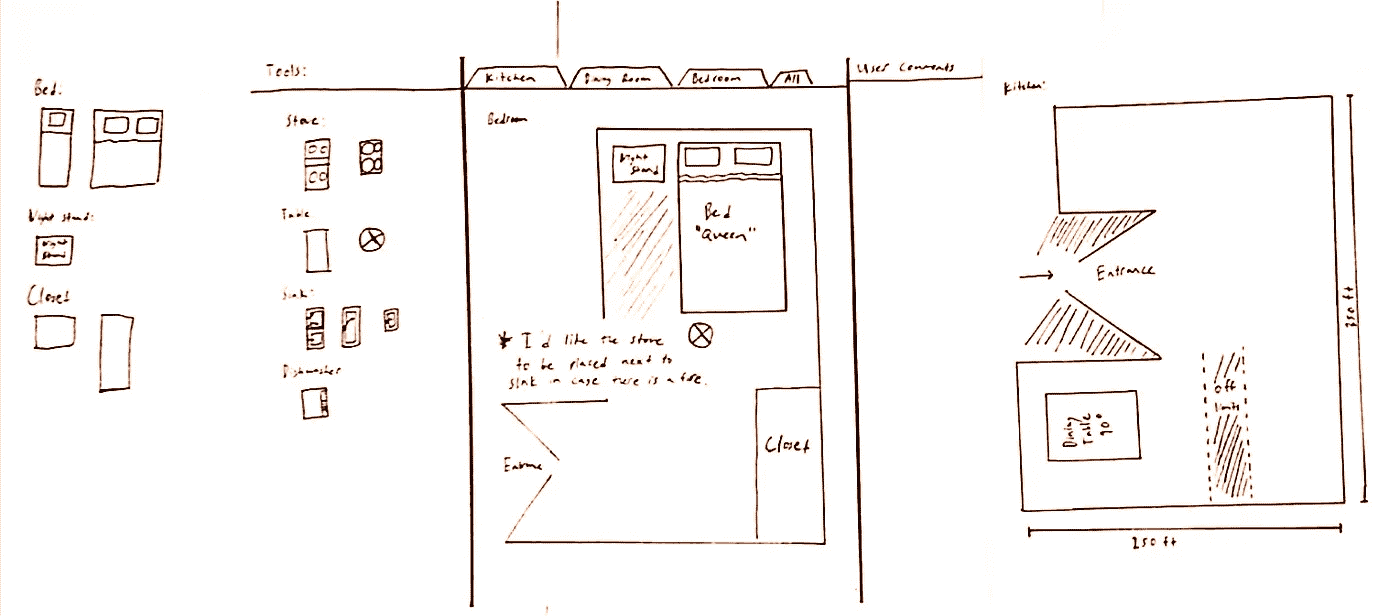 Bed:
Night Stand:
Night
Stand
Closet
Tools:
Stove:
Table
Sink:
Dishwasher
Kitchen
Dining Room
Bedroom
All
Bedroom
Night
Stand
Bed
"Queen"
* I'd like the stove
to be placed next to
sink in case there is a fire.
Entrance
Closet
User Comments
Kitchen:
Entrance
Off
limits
Dining
Table
90°
350 ft
250 ft